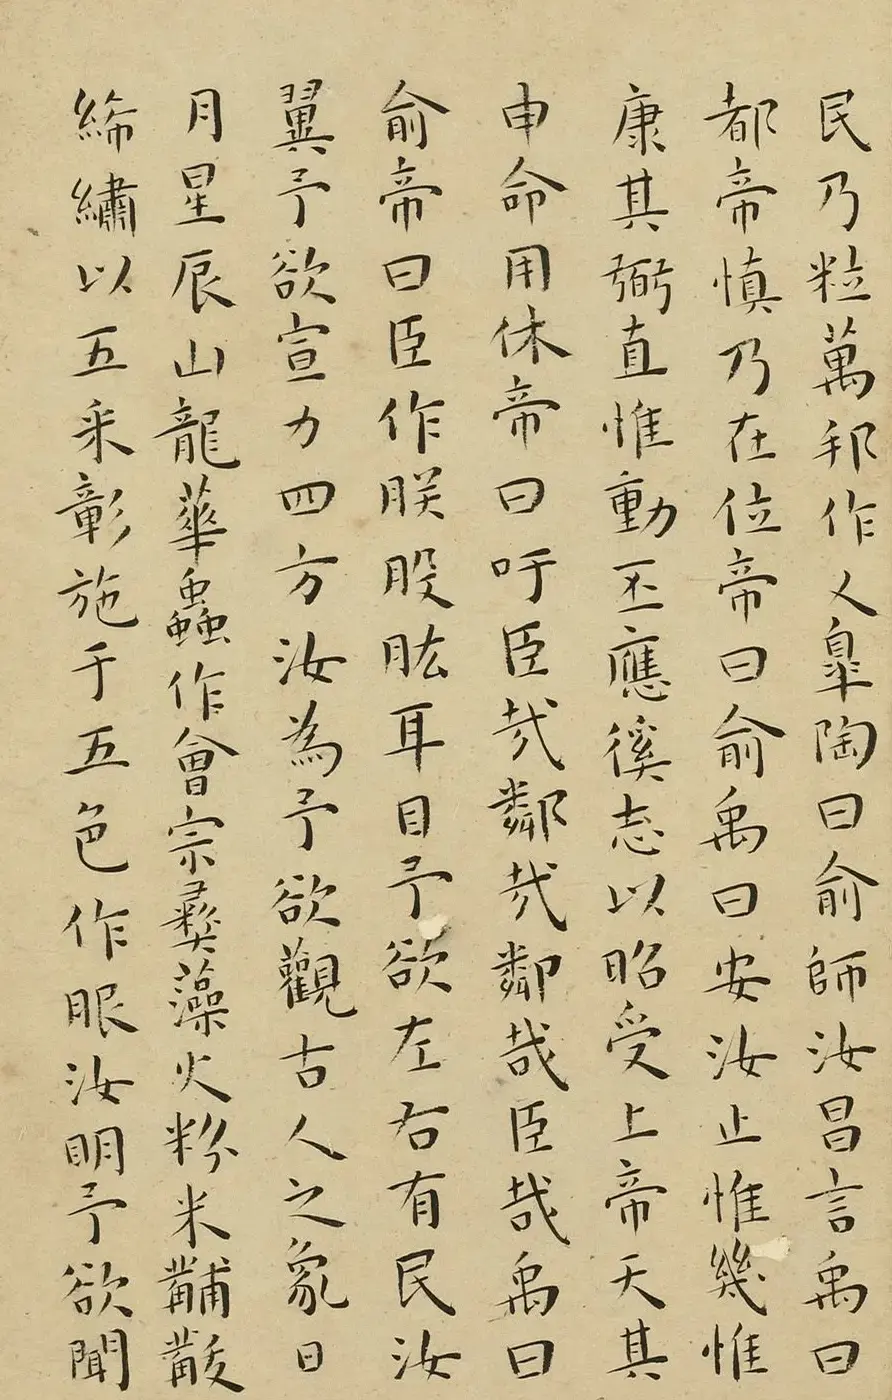 民乃粒萬邦作乂皐陶曰俞師汝昌言禹曰
都帝慎乃在位帝曰俞禹曰安汝止惟幾惟
康其弼直惟動丕應徯志以昭受上帝天其
申命用休帝曰吁臣哉鄰哉鄰哉臣哉禹曰
俞帝曰臣作朕股肱耳目予欲左右有民汝
翼予欲宣力四方汝為予欲觀古人之象日
月星辰山龍華蟲作會宗彝藻火粉米黼黻
絺繡以五采彰施于五色作服汝明予欲聞